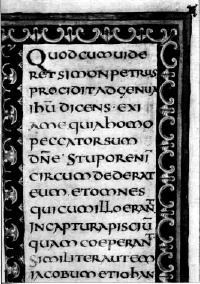 QUODCUMUIDE
RETSIMONPETRUS
PROCIDITADGENUA
IHU DICENS · EXI
AMEQUIAHOMO
PECCATORSUM
DNE · STUPORENI
CIRCUMDEDERAT
EUM · ETOMNES
QUICUMILLOERANT
INCAPTURAPISCIU
QUAMCOEPERANT
SIMILITERAUTEM
IACOBUMETIOHAN